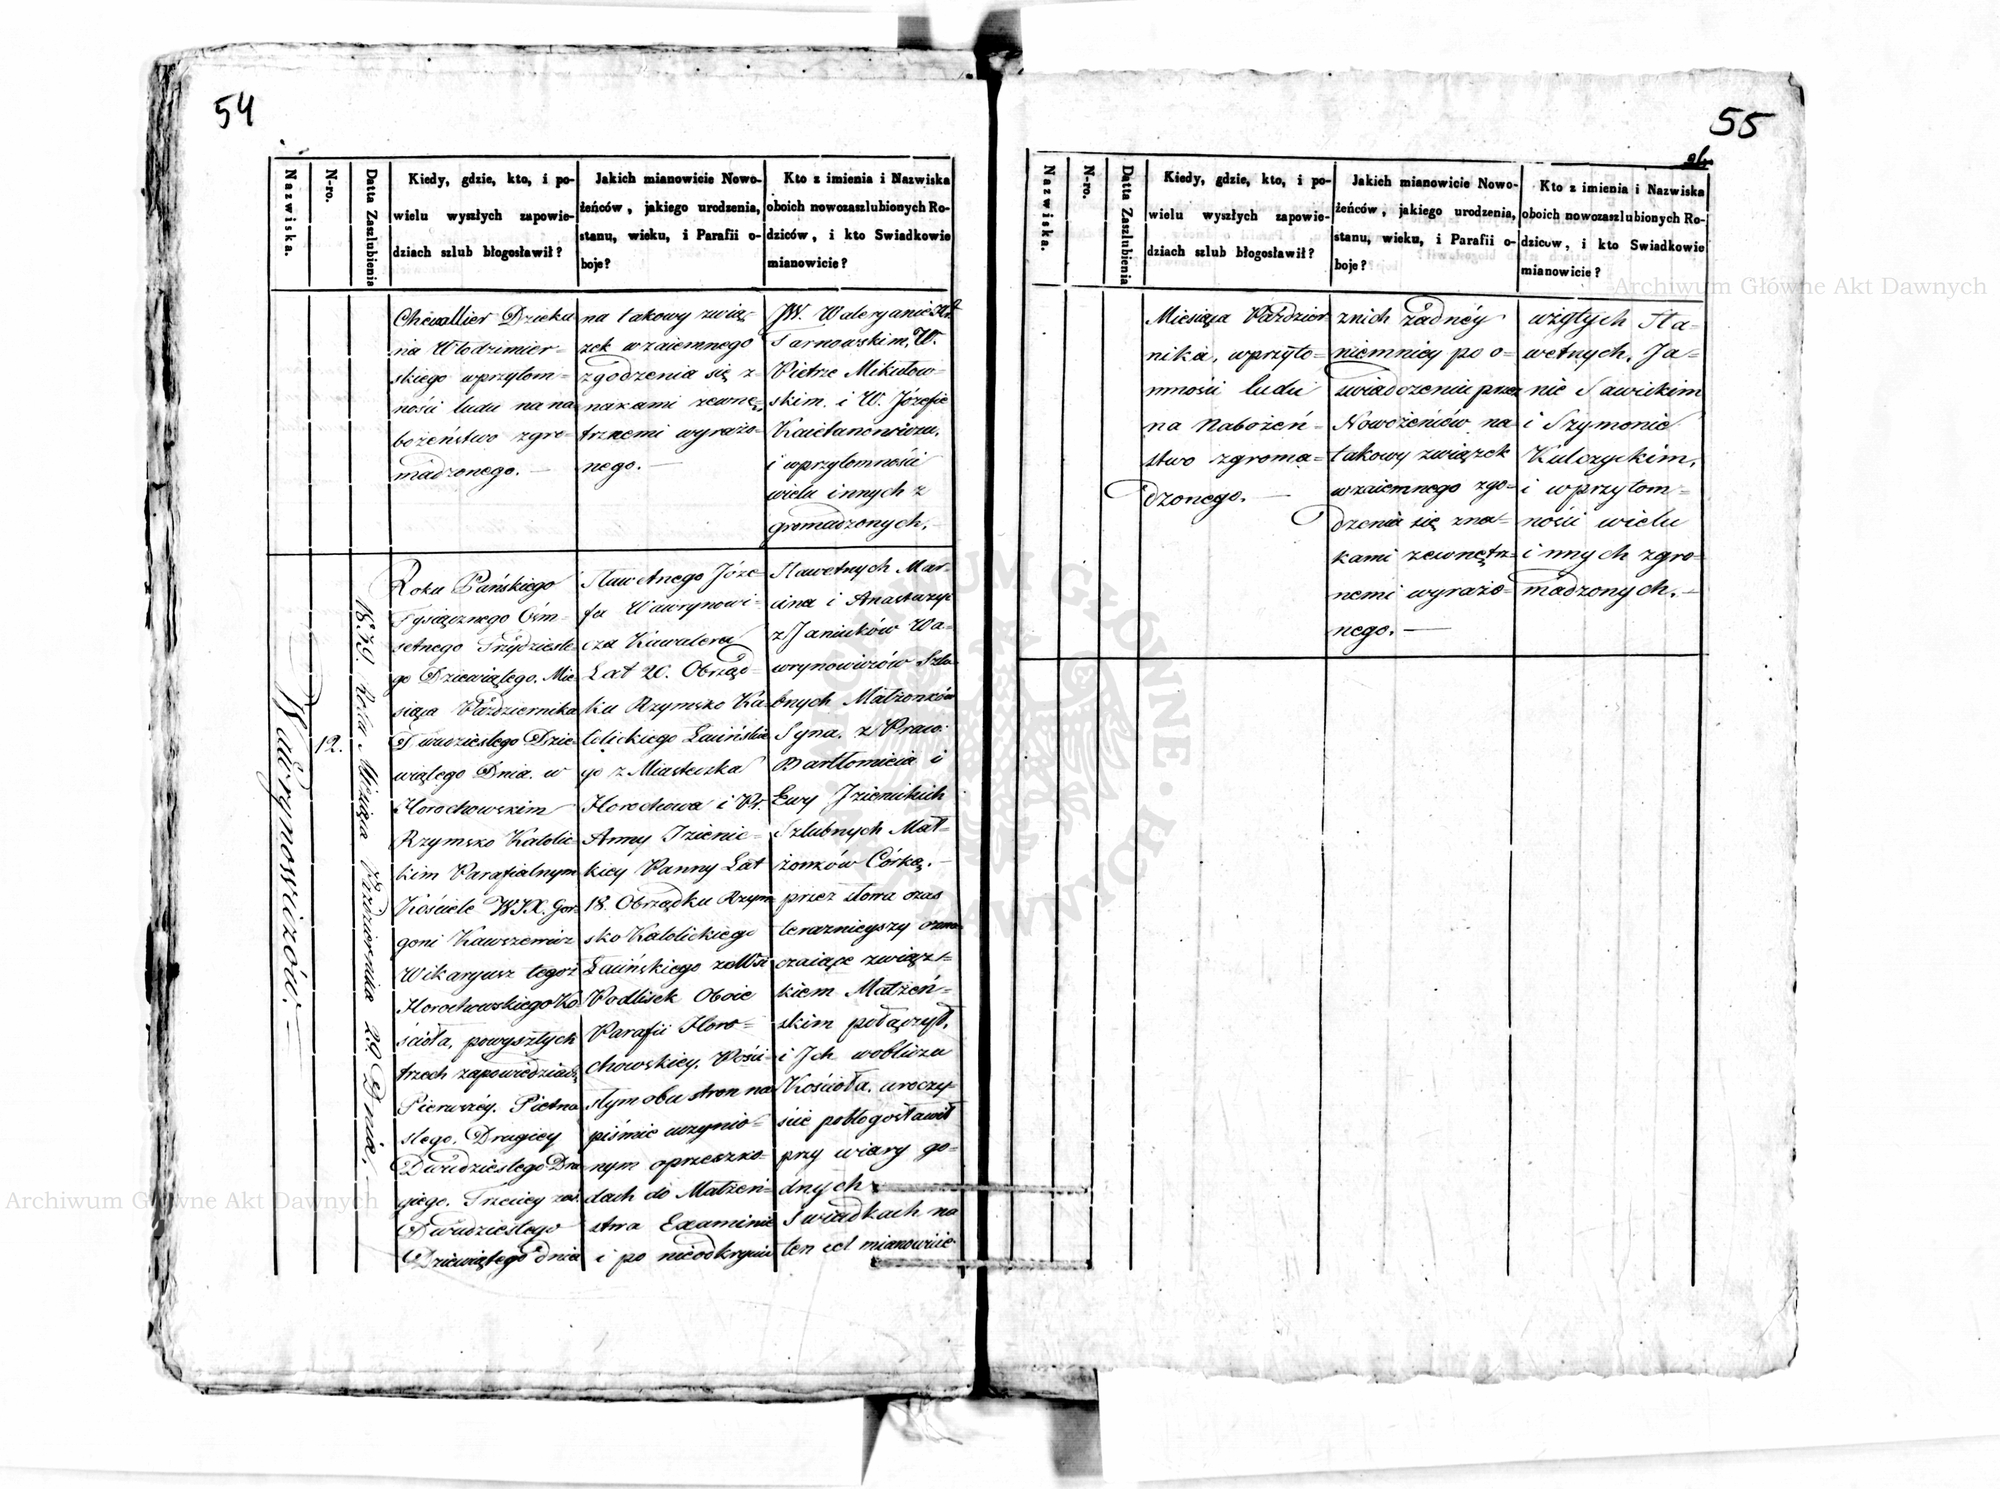 54
Nazwiska.
N-ro.
Datta Zaszlubienia
Kiedy, gdzie, kto, i po-
wielu wyszłych zapowie-
dziach szlub błogosławił?
Jakich mianowicie Nowo-
żeńców, jakiego urodzenia,
stanu, wieku, i Parafii o-
boje?
Kto z imienia i Nazwiska
oboich nowozaszlubionych Ro-
dziców, i kto Swiadkowie
mianowicie?
Chevallier Dzieka
nia Włodzimier-
skiego wprzytom-
ności ludu na na
bożeństwo zgro-
madzonego. —
na takowy zwią-
zek wzaiemnego
zgodzenia się z-
nakami zewnę-
trznemi wyrażo-
nego. —
JW. Waleryanie
Tarnowskim, W.
Pietrze Mikułow-
skim. i W. Józefie
Kaietanowiczu.
i wprzytomności
wielu innych z
gromadzonych. —
Wawrynowiczów. =
12.
1839. Roku Miesiąca Października 29 Dnia. —
Roku Pańskiego
Tysiącznego Ośm-
setnego Trzydzieste-
go Dziewiątego. Mie-
siąca Października
Dwudziestego Dzie-
wiątego Dnia. w
Horochowskim
Rzymsko Katolic-
kim Parafialnym
Kościele WJX. Gor-
goni
Wikaryusz tegoż
Horochowskiego Ko-
ścioła, powyszłych
trzech zapowiedziach
Pierwszey. Pietna
stego, Drugiey
Dwudziestego Dru
giego. Trzeciey zaś
Dwudziestego
Dziewiątego dnia
Sławetnego Józe-
fa Wawrynowi-
cza Kawalera
Lat 20. Obrząd-
ku Rzymsko Ka-
tolickiego Łacińskie
go z Miasteczka
Horochowa i Pr.
Anny Izienic-
kiey Panny Lat
18. Obrządku Rzym-
sko Katolickiego
Łacińskiego ze Wsi
Podlisek Oboie
Parafii Horo-
chowskiey. Pości-
słym obu stron na
piśmie uczynio-
nym oprzeszko-
dach do Małżeń-
stwa Examinie
i po nieodkryciu
Sławetnych Mar-
cina i Anastazyi
z Janiuków Wa-
wrynowiczów Szlu-
bnych Małżonków
Syna. z Praco:
Bartłomieia i
Ewy Izienickich
Szlubnych Mał-
żonków Córką. —
przez słowa czas
teraznieyszy ozna-
czaiące związ-
kiem Małżeń-
skim połączył,
i Ich wobliczu
Kościoła. uroczy-
scie pobłogosławił
przy wiary go-
dnych
Swiadkach na
ten cel mianowicie
55
Nazwiska.
N-ro.
Datta Zaszlubienia
Kiedy, gdzie, kto, i po-
wielu wyszłych zapowie-
dziach szlub błogosławił?
Jakich mianowicie Nowo-
żeńców, jakiego urodzenia,
stanu, wieku, i Parafii o-
boje?
Kto z imienia i Nazwiska
oboich nowozaszlubionych Ro-
dziców, i kto Swiadkowie
mianowicie?
Miesiąca Paździer
nika, wprzyto-
mności ludu
na Nabożeń-
stwo zgroma-
dzonego. —
znich żadnéy
niemnicy po o-
świadczeniu przez
Nowożeńców na
takowy związek
wzaiemnego zgo-
dzenia się zna-
kami zewnętrz-
nemi wyrażo-
nego. —
wziętych Sła-
wetnych. Ja-
nie Sawickim
i Szymonie
Kulczyckim,
i wprzytom-
ności wielu
innych zgro-
madzonych. —
Archiwum Główne Akt Dawnych
Archiwum Główne Akt Dawnych